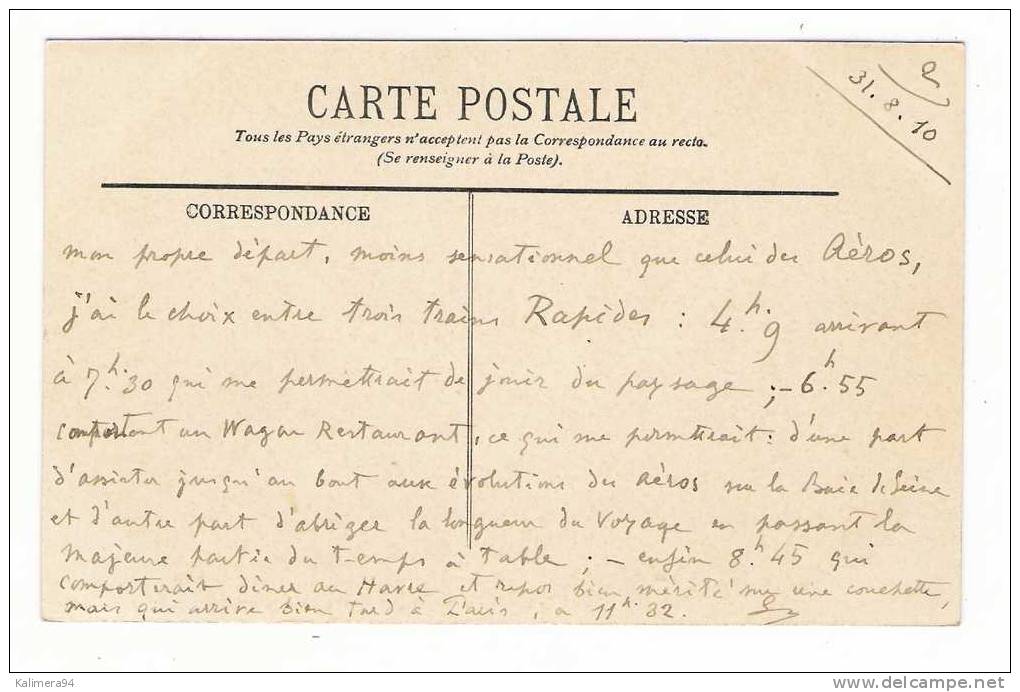 2
31.8.10
CARTE POSTALE
Tous les Pays étrangers n'acceptent pas la Correspondance au recto.
(Se renseigner à la Poste).
CORRESPONDANCE
ADRESSE
mon propre départ, moins sensationnel que celui des Aéros,
j'ai le choix entre trois trains Rapides : 4h.9 arrivant
à 7h.30 qui me permettrait de jouir du paysage ; - 6h.55
comportant un Wagon Restaurant, ce qui me permettrait : d'une part
d'assister jusqu'au bout aux évolutions des Aéros sur la Baie de Seine
et d'autre part d'abréger la longueur du Voyage en passant la
majeure partie du temps à table ; - enfin 8h.45 qui
comporterait diner au Havre et repos bien mérité sur une couchette,
mais qui arrive bien tard à Paris, à 11h.32.
Kalimera94
www.delcampe.net